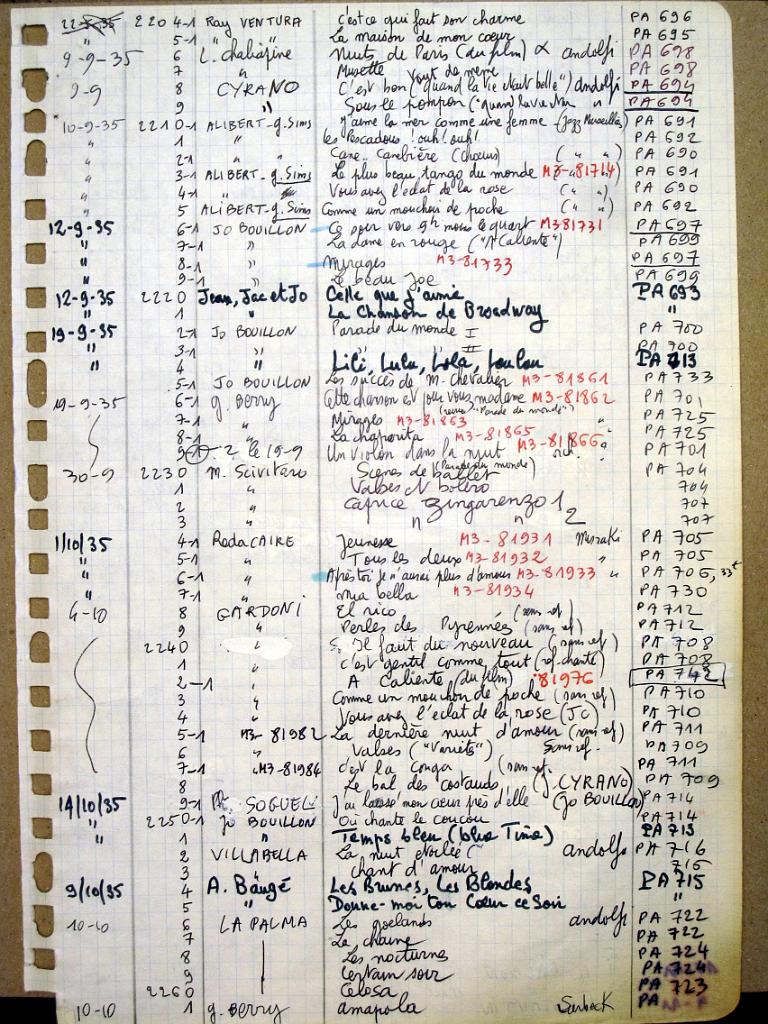 22-8-35 2204-1 Ray VENTURA c'est ce qui fait son charme PA 696
" 5-1 " La maison de mon cœur PA 695
9-9-35 6 L. chaliapine Nuits de Paris (du film) andolfi PA 698
" 7 " Musette PA 698
9-9 8 CYRANO C'est bon ("quand la vie est belle") andolfi PA 694
9 " Sous le pompon PA 694
10-9-35 2210-1 ALIBERT-g. Sims J'aime la mer comme une femme (Jazz Marseillais) PA 691
" 1 " " les Pescadous ! ouh ! ouh ! PA 692
" 2-1 " " Cane.. Canebière (chœurs) ( " " ) PA 690
" 3-1 ALIBERT-g. Sims Le plus beau tango du monde M3-81714 PA 691
" 4-1 " Vous avez l'eclat de la rose ( " " ) PA 690
" 5 ALIBERT-g. Sims Comme un mouchoir de poche ( " " ) PA 692
12-9-35 6-1 JO BOUILLON Ce soir vers 9h moins le quart M381731 PA 697
" 7-1 " La dame en rouge ("A Caliente") PA 699
" 8-1 " Mirages M3-81733 PA 697
" 9-1 " Le beau Joe PA 699
12-9-35 2220 Jean, Jac et Jo Celle que j'aime PA 693
1 " La Chanson de Broadway "
19-9-35 2-1 JO BOUILLON Parade du monde I PA 700
" 3-1 " " II PA 700
" 4 " Lili, Lulu, Lola, Loulou PA 713
5-1 JO BOUILLON Les succès de M. Chevalier M3-81861 PA 733
19-9-35 6-1 g. Berry Cette chanson est pour vous madame M3-81862 PA 701
(revue "Parade du monde")
7-1 " Mirages M3-81863 " PA 725
8-1 " La chaparita M3-81865 " PA 725
9-1 - 2 le 19-9 Un violon dans la nuit M3-81866 " PA 701
30-9 2230 M. Scivitaro Scenes de ballet (Parade du monde) PA 704
1 " Valses N boléro 704
2 " caprice Zingarenzo 1 707
3 " " " 2 707
1/10/35 4-1 Reda CAIRE Jeunesse M3-81931 Misraki PA 705
" 5-1 " Tous les deux M3-81932 " PA 705
" 6-1 " Après toi je n'aurai plus d'amour M3-81933 " PA 706, 33t
" 7-1 " Mia bella M3-81934 PA 730
4-10 8 GARDONI El rico (sans ref) PA 712
9 " Perles des Pyrennées (sans ref) PA 712
2240 " Il faut du nouveau (sans ref) PA 708
1 " c'est gentil comme tout (ref. chanté) PA 708
2-1 " A Caliente (du film) 81976 PA 742
3 " Comme un mouchoir de poche (sans ref) PA 710
4 " Vous avez l'eclat de la rose (JC) PA 710
5-1 M3-81982 La dernière nuit d'amour (sans ref) PA 711
6 " Valses ("Variétés") Sans ref. PA 709
7-1 " M3-81984 c'est la conga (sans ref. PA 711
8 Le bal des costauds (J. CYRANO) PA 709
14/10/35 9-1 SOGUEL J'ai laissé mon cœur près d'elle (Jo BOUILLON) PA 714
" 2250-1 Jo BOUILLON Où chante le coucou PA 714
" 1 " Temps bleu (blue Time) PA 713
2 VILLABELLA La nuit etoilée andolfi PA 716
3 " chant d'amour 716
9/10/35 4 A. Baugé Les Brunes, Les Blondes PA 715
5 " Donne-moi ton Cœur ce Soir "
10-10 6 LA PALMA Les goelands andolfi PA 722
7 La chaine PA 722
8 Les nocturnes PA 724
9 Certain soir PA 724
2260 Celosa PA 723
10-10 1 g. Berry amapola PA